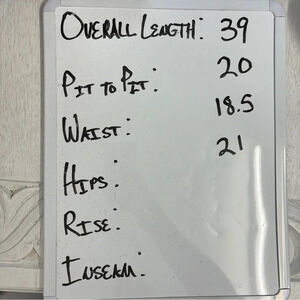 OVERALL LENGTH: 39
PIT TO PIT: 20
WAIST: 18.5
HIPS: 21
RISE:
INSEAM: